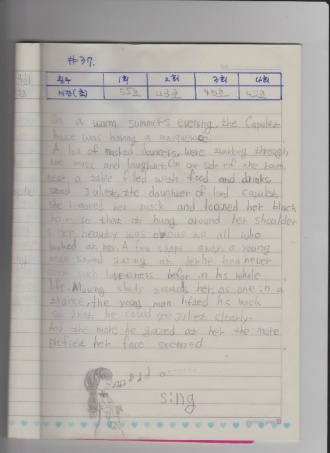 #37.
횟수 1회 2회 3회 4회
시간(초) 55초 43초 45초 42초
In a warm summer's evening, the Capulet
house was having a
A lot of masked dancers were swirling through
the music and laughter. On one side of the room
near a table filled with food and drinks,
stood Juliet, the daughter of lord Capulet
she removed her mask and loosened her black
so that it hung around her shoulder
her beauty was to all who
looked at her. A few steps away, a young
man stood staring at her he had never
seen such loveliness before in his whole
life. Moving slowly towards her, as one in a
trance, the young man lifted his mask
so that he could see Juliet clearly.
And the more he gazed at her the more
perfect her face seemed
sing